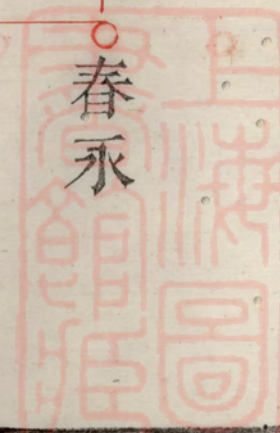 春永
上海圖
書館藏